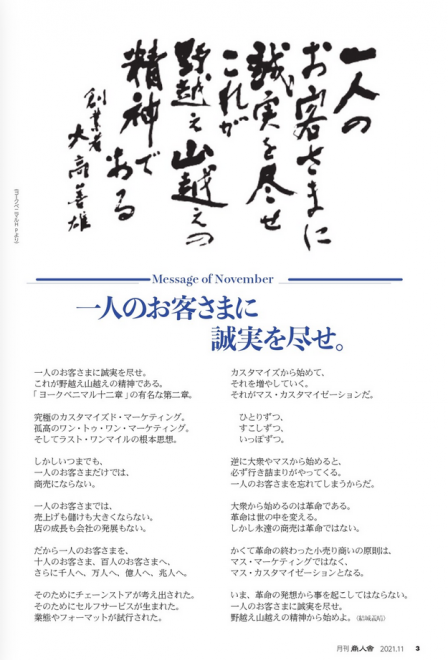 一人の
お客さまに
誠実を尽せ
これが
野越え山越えの
精神で
ある
創業者
大高善雄
ヨークベニマルHPより
Message of November
一人のお客さまに
誠実を尽せ。
一人のお客さまに誠実を尽せ。
これが野越え山越えの精神である。
「ヨークベニマル十二章」の有名な第二章。
究極のカスタマイズド・マーケティング。
孤高のワン・トゥ・ワン・マーケティング。
そしてラスト・ワンマイルの根本思想。
しかしいつまでも、
一人のお客さまだけでは、
商売にならない。
一人のお客さまでは、
売上げも儲けも大きくならない。
店の成長も会社の発展もない。
だから一人のお客さまを、
十人のお客さま、百人のお客さまへ、
さらに千人へ、万人へ、億人へ、兆人へ。
そのためにチェーンストアが考え出された。
そのためにセルフサービスが生まれた。
業態やフォーマットが試行された。
カスタマイズから始めて、
それを増やしていく。
それがマス・カスタマイゼーションだ。
ひとりずつ、
すこしずつ、
いっぽずつ。
逆に大衆やマスから始めると、
必ず行き詰まりがやってくる。
一人のお客さまを忘れてしまうからだ。
大衆から始めるのは革命である。
革命は世の中を変える。
しかし永遠の商売は革命ではない。
かくて革命の終わった小売り商いの原則は、
マス・マーケティングではなく、
マス・カスタマイゼーションとなる。
いま、革命の発想から事を起こしてはならない。
一人のお客さまに誠実を尽せ。
野越え山越えの精神から始めよ。〈結城義晴〉
月刊 商人舎 2021.11 3